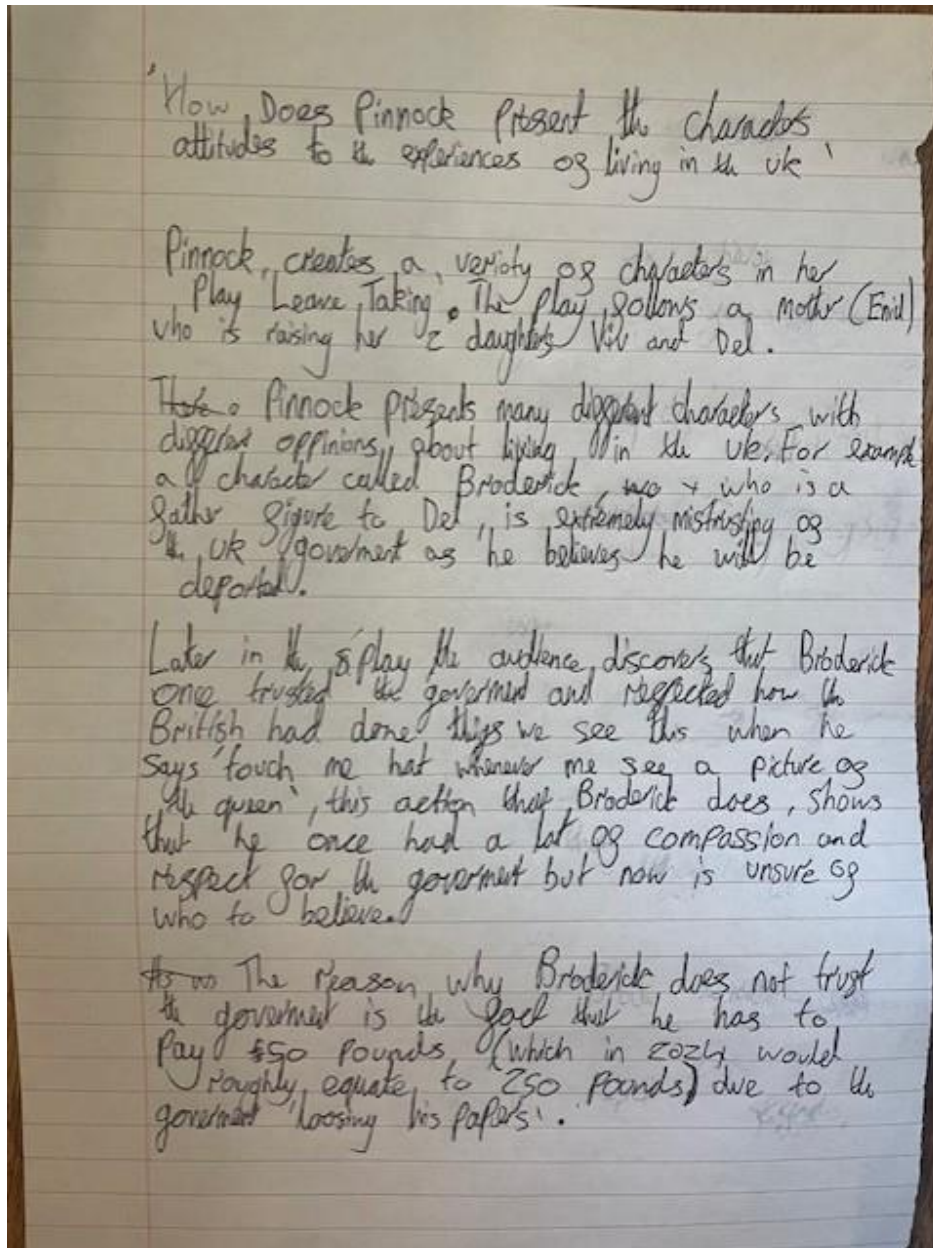 'How Does Pinnock Present the characters
attitudes to the experiences of living in the uk'
Pinnock, creates a verioty of characters in her
Play 'Leave Taking'. The play follows a mother (Enid)
who is raising her 2 daughters Viv and Del.
Pinnock presents many different characters with
different oppinions, about living in the uk. For example
a character called Broderick, who is a
father figure to Del, is extremely mistrusting of
the UK goverment as he believes he will be
deported.
Later in the play the audience, discovers that Broderick
once trusted the goverment and respected how the
British had done things we see this when he
says 'touch me hat whenever me see a picture of
the queen', this action that Broderick does, shows
that he once had a lot of compassion and
respect for the goverment but now is unsure of
who to believe.
The reason why Broderick does not trust
the goverment is the fact that he has to
Pay £50 Pounds, (which in 2024 would
roughly equate to 250 pounds) due to the
goverment 'loosing his papers'.